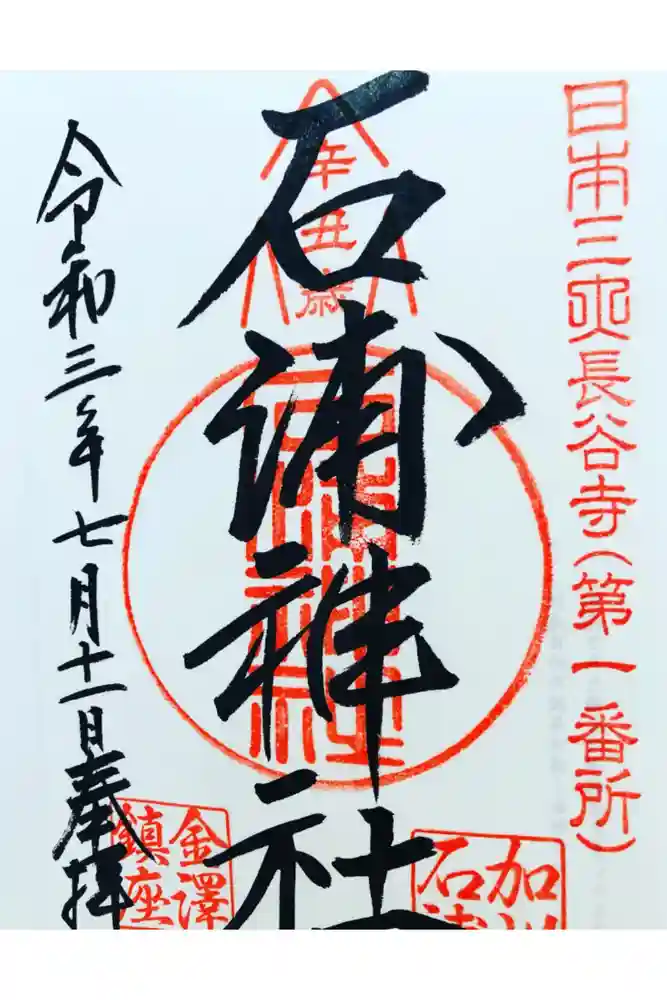 日本三大長谷寺(第一番所)
辛丑歳
石浦神社
石浦神社
加
石浦
令和三年七月十一日奉拝
金澤
鎮座